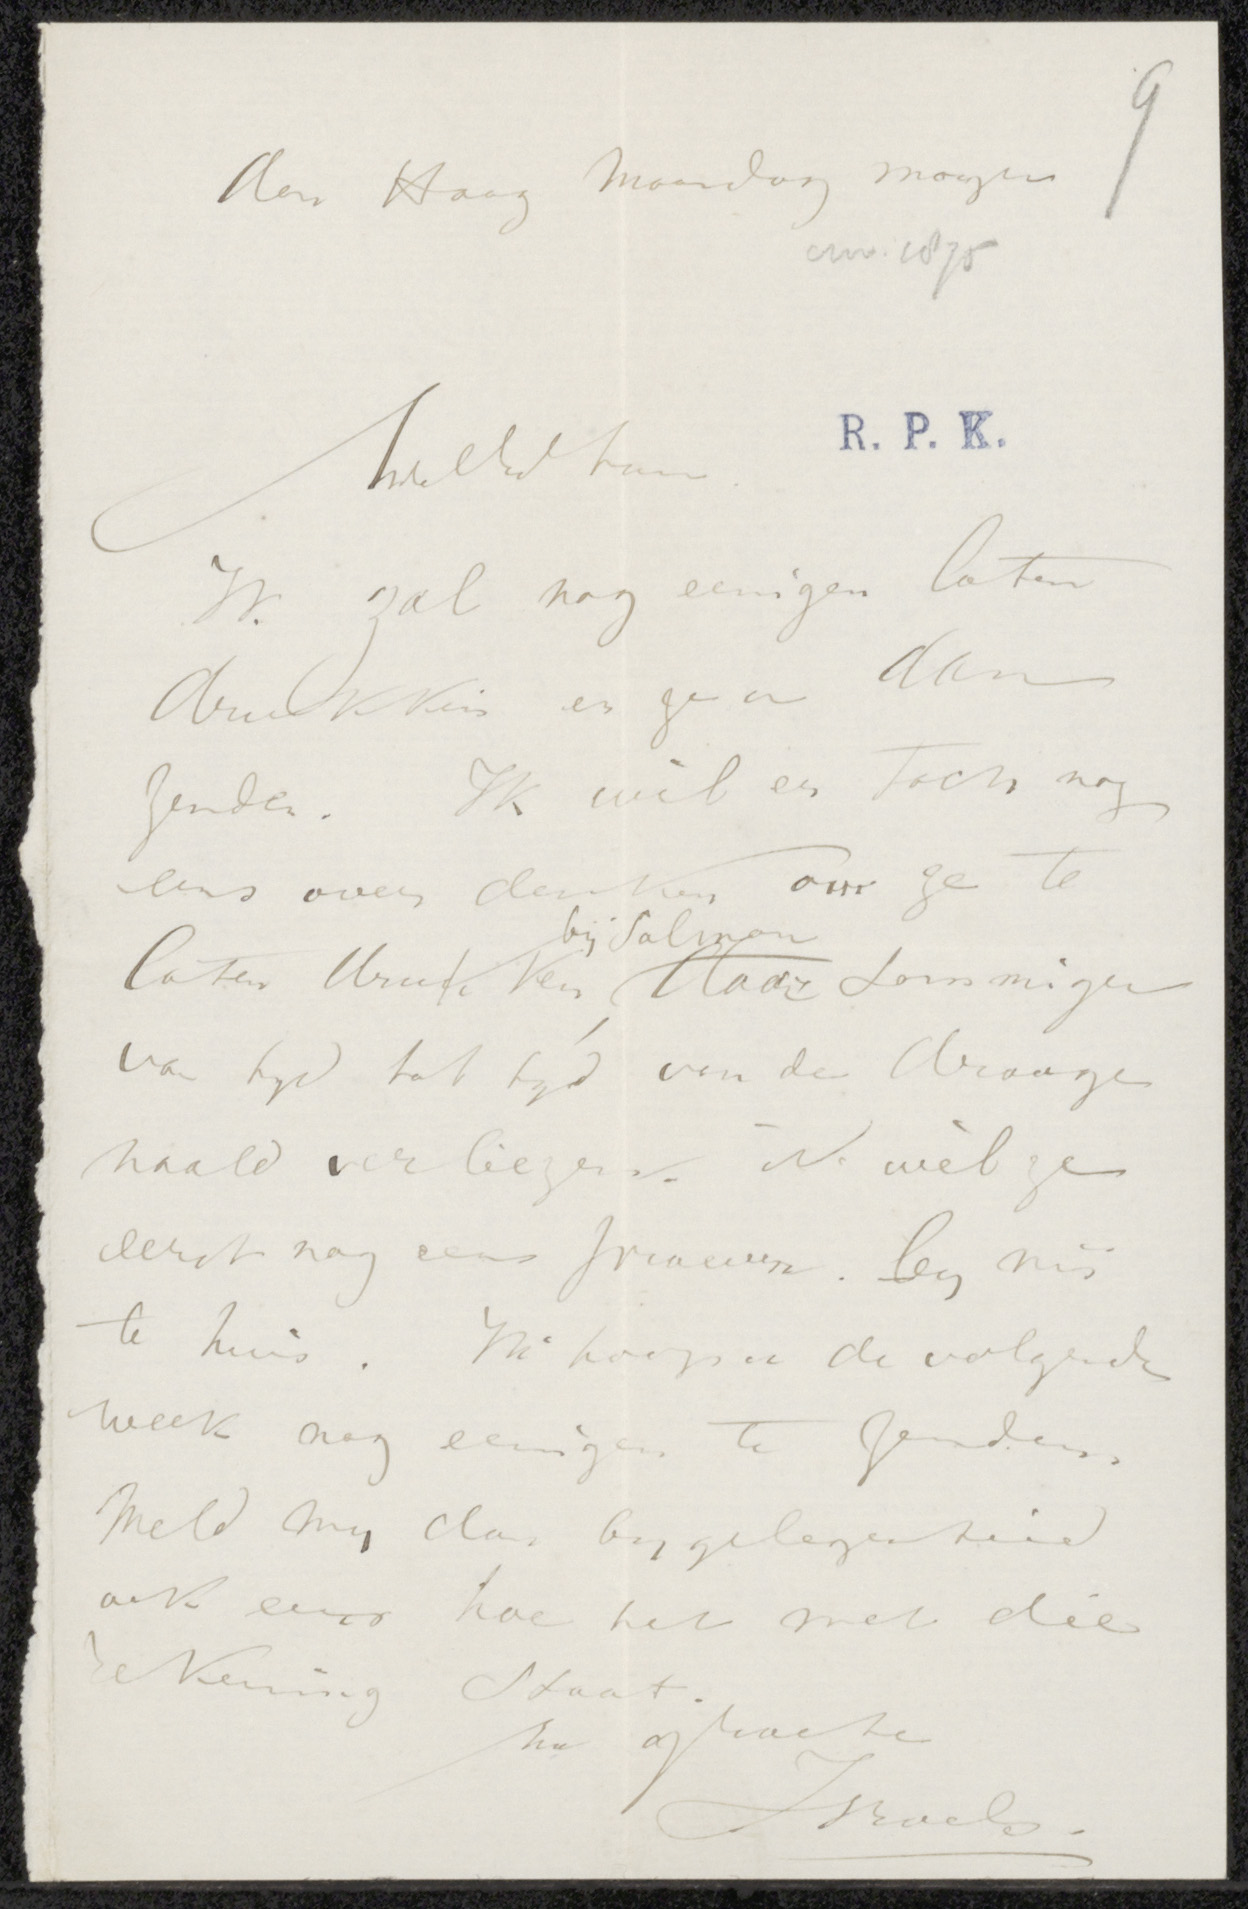 9
den Haag Maandag morgen
omr. 1875
R. P. K.
WelEd heer
Ik zal nog eenigen laten
drukken en ze u dan
zenden. Ik wil er toch nog
eens over denken om ze te
bij Salmon
laten drukken, daar sommigen
van tyd tot tyd van de drooge
naald verliezen. Ik wil ze
eerst nog eens by mij
te huis. Ik hoop u de volgende
week nog eenigen te zenden
Meld my dan by gelegenheid
ook eens hoe het met die
rekening staat.
Israels.